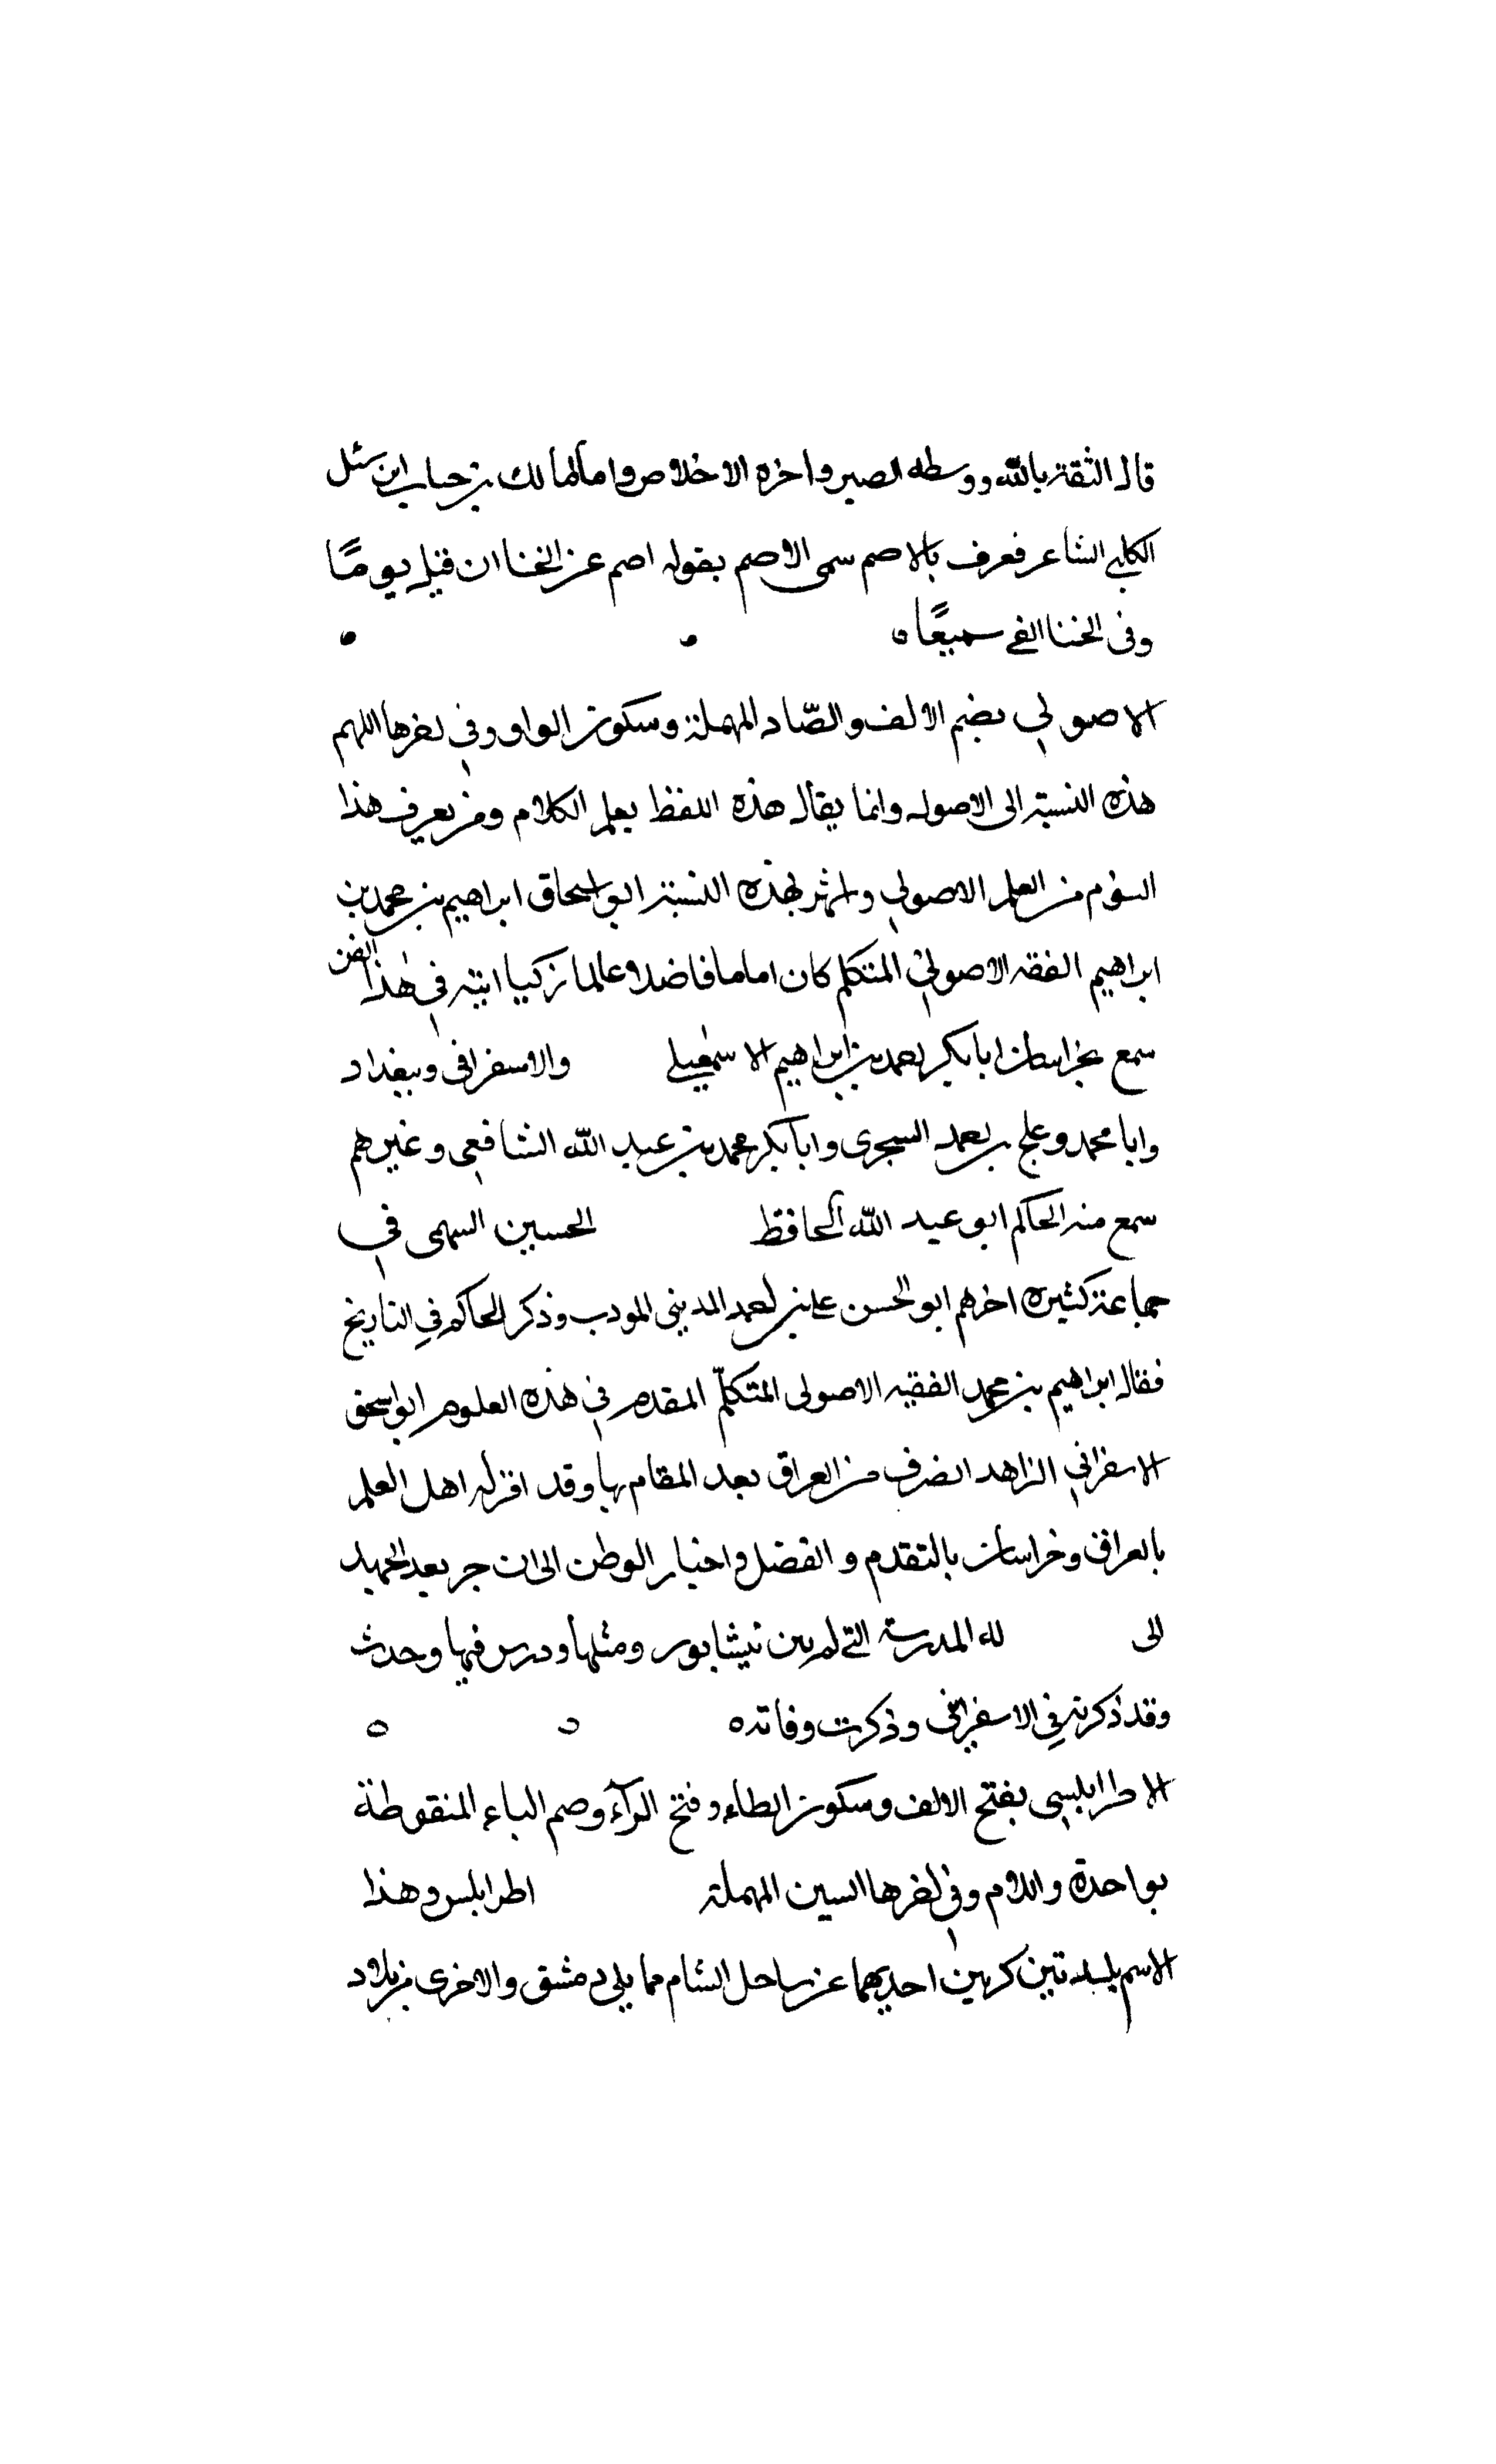 قال الثقة بالله ووسطه الصبر واخره الاخلاص واما مالك بن جناب ابن سئل
الكلبي الشاعر فعرف بالاصم سمى الاصم بقوله اصم عن الخنا ان قيل يوما
وفى الخنا الفى سميعًا ه
الاصولي بضم الالف والصّاد المهملة وسكون الواو وفي اخرها اللهم
هذه النسبة الى الاصول وانما يقال هذه اللفظ بعلم الكلام ومن يعرف هذا
النوع من العلم الاصولي واشهر بهذه النسبة ابو اسحاق ابراهيم بن محمد بن
ابراهيم الفقه الاصولي المتكلم كان اماما فاضلا عالما زكيا ابته في هذا الفن
سمع بخراسان ابا بكر احمد بن ابراهيم الاسمعيلي والاسفرانى وببغداد
وابا محمد وعلج بن احمد السجرى وابا بكر محمد بن عبد الله الشافعي وغيرهم
سمع منه الحاكم ابو عبد الله الحافظ الحسين السهمى في
جماعة كثيره اخرهم ابو الحسن على بن احمد المدينى المودب وذكر الحاكم في التاريخ
فقال ابراهيم بن محمد الفقيه الاصولى المتكلّم المقدم في هذه العلوم ابو اسحق
الاسفراني الزاهد انصرف من العراق بعد المقام بها وقد اقر له اهل العلم
بالعراق وخراسان بالتقدم والفضل واختار الوطن الى ان جر بعد الجهد
الى لله المدرسة التي لم يبن نيشابور ومثلها ودرس فيها وحدث
وقد ذكرته في الاسفرانى وذكرت وفاته ه
الاطرابلسي بفتح الالف وسكون الطاء وفتح الرآء وضم الباء المنقوطة
بواحدة واللام وفي اخرها السين المهملة اطرابلس وهذا
الاسم لبلدتين كبرين احديهما عن ساحل الشام مما يلي دمشق والاخرى من بلاد